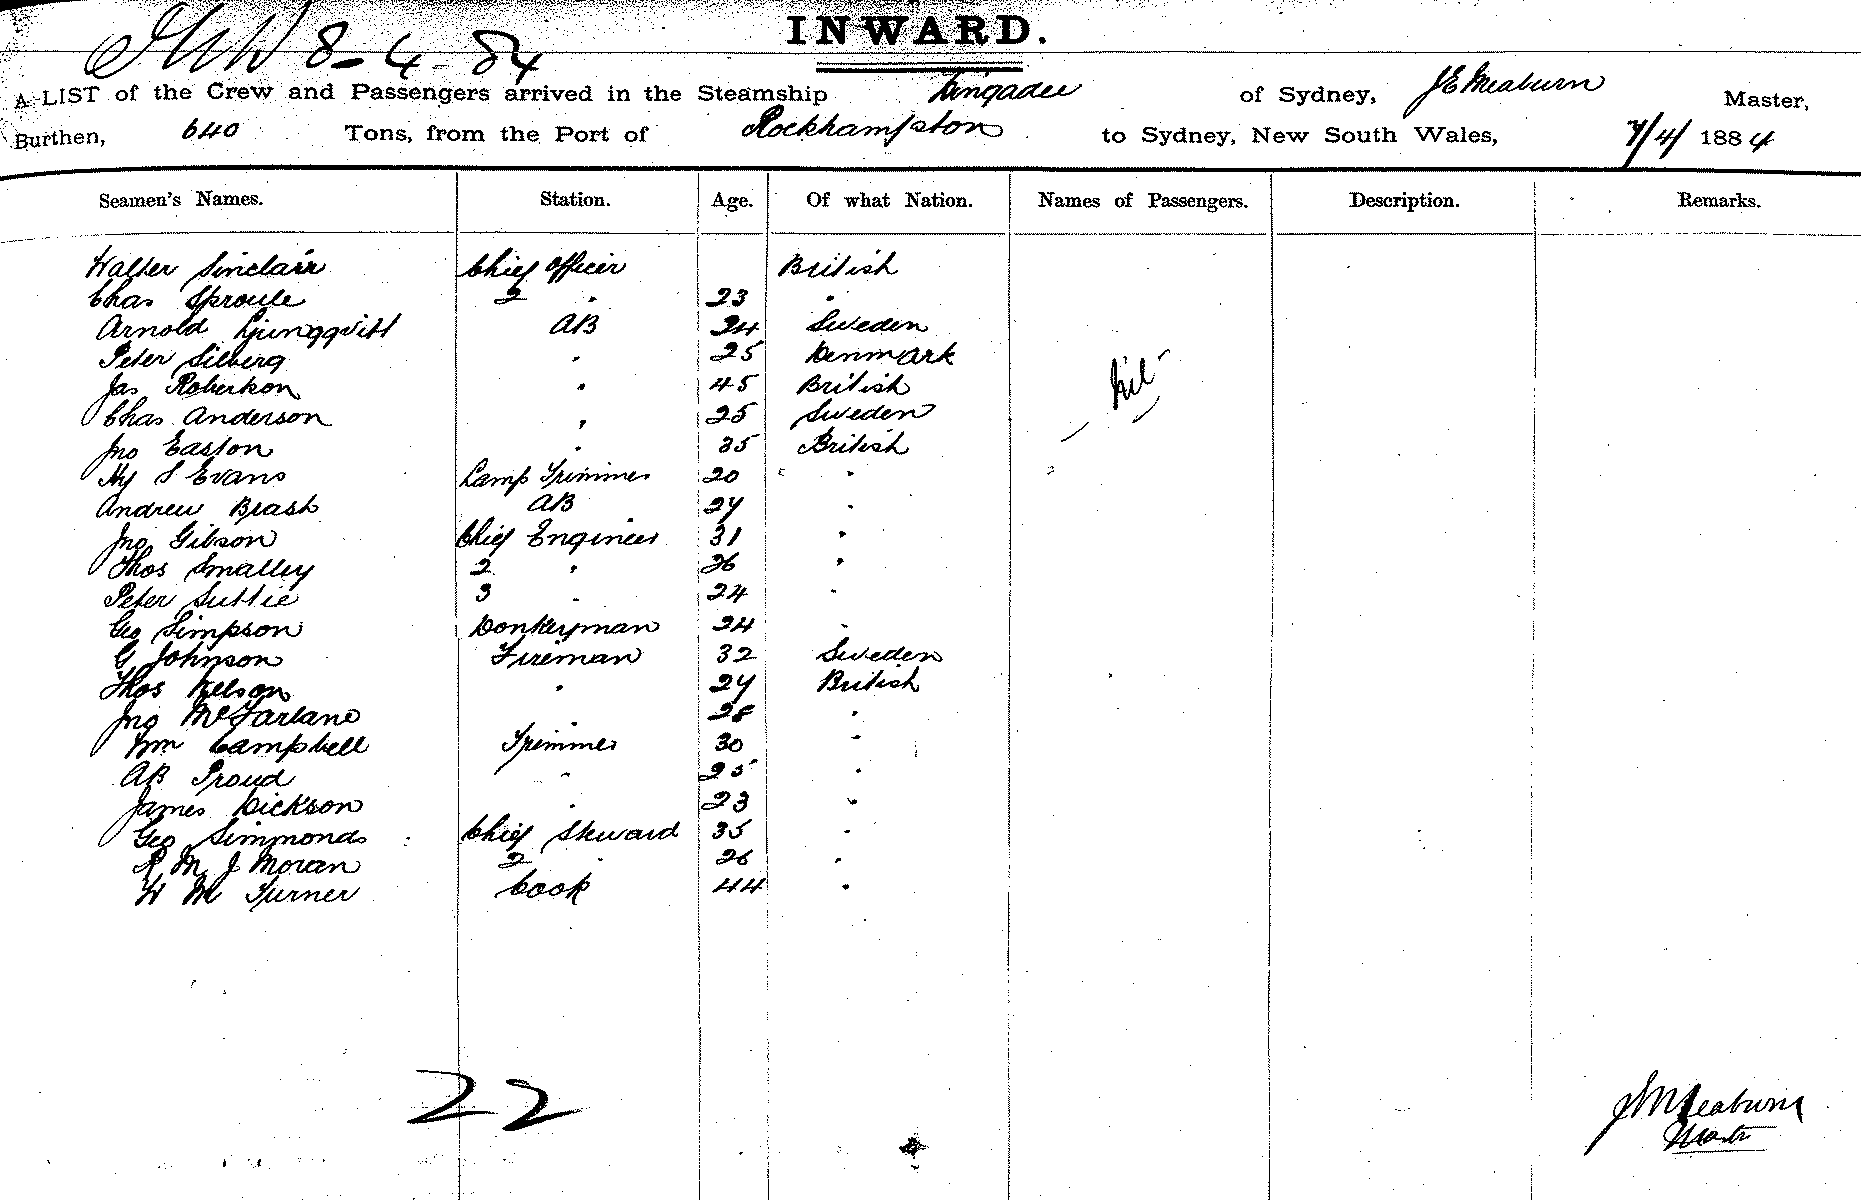 INWARD.
8-4-84
A LIST of the Crew and Passengers arrived in the Steamship Kingadee of Sydney, JE Meaburn Master,
Burthen, 640 Tons, from the Port of Rockhampton to Sydney, New South Wales, 7/4/ 1884
Seamen's Names. Station. Age. Of what Nation. Names of Passengers. Description. Remarks.
Walter Sinclair Chief Officer British
Chas Sproule 2 " 23 "
Arnold Ljungqvist AB 24 Sweden
Peter Silberg " 25 Denmark
Jas Robertson " 45 British
Chas Anderson " 25 Sweden
Jno Easton " 35 British
Hy S Evans Lamp Trimmer 20 "
Andrew Brash AB 27 "
Jno Gibson Chief Engineer 31 "
Thos Smalley 2 " 26 "
Peter Suttie 3 " 24 "
Geo Simpson Donkeyman 24 "
G Johnson Fireman 32 Sweden
Thos Nelson " 27 British
Jno McFarlane " 28 "
Wm Campbell Trimmer 30 "
AB Proud " 25 "
James Dickson " 23 "
Geo Simmonds Chief Steward 35 "
R M J Moran 2 " 26 "
W M Turner Cook 44 "
Nil
22
J Meaburn
Master